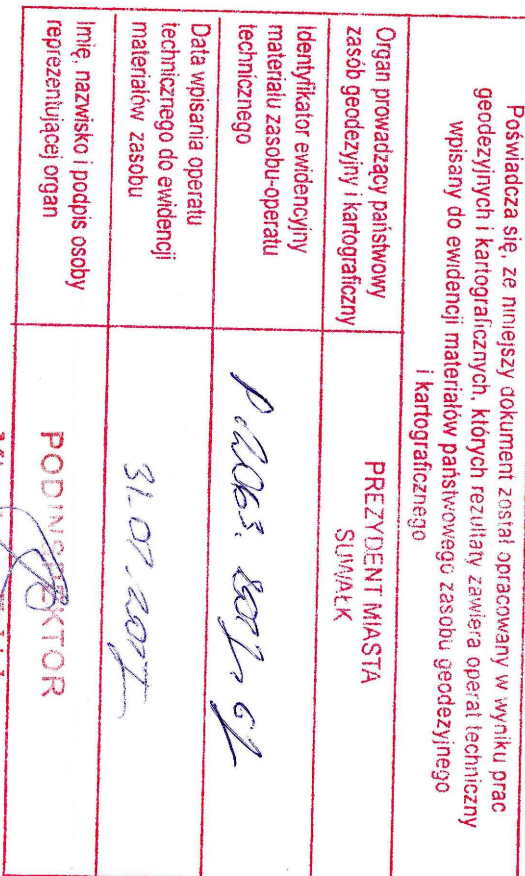 Poświadcza się, że niniejszy dokument został opracowany w wyniku prac
geodezyjnych i kartograficznych, których rezultaty zawiera operat techniczny
wpisany do ewidencji materiałów państwowego zasobu geodezyjnego
i kartograficznego
Organ prowadzący państwowy
zasób geodezyjny i kartograficzny
PREZYDENT MIASTA
SUWAŁK
Identyfikator ewidencyjny
materiału zasobu-operatu
technicznego
P.2063.
Data wpisania operatu
technicznego do ewidencji
materiałów zasobu
31.07.
Imię, nazwisko i podpis osoby
reprezentującej organ
PODINSPEKTOR